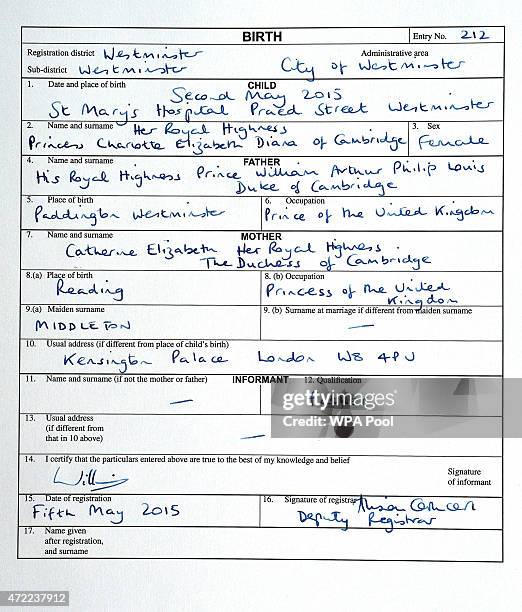 BIRTH Entry No. 212
Registration district Westminster Administrative area
Sub-district Westminster City of Westminster
1. Date and place of birth CHILD
Second May 2015
St Mary's Hospital Praed Street Westminster
2. Name and surname Her Royal Highness 3. Sex
Princess Charlotte Elizabeth Diana of Cambridge Female
4. Name and surname FATHER
His Royal Highness Prince William Arthur Philip Louis
Duke of Cambridge
5. Place of birth 6. Occupation
Paddington Westminster Prince of the United Kingdom
7. Name and surname MOTHER
Catherine Elizabeth Her Royal Highness
The Duchess of Cambridge
8.(a) Place of birth 8. (b) Occupation
Reading Princess of the United
Kingdom
9.(a) Maiden surname 9. (b) Surname at marriage if different from maiden surname
MIDDLETON —
10. Usual address (if different from place of child's birth)
Kensington Palace London W8 4PU
11. Name and surname (if not the mother or father) INFORMANT 12. Qualification
—
gettyimages
WPA Pool
13. Usual address
(if different from
that in 10 above) —
14. I certify that the particulars entered above are true to the best of my knowledge and belief
Signature
of informant
15. Date of registration 16. Signature of registrar
Fifth May 2015 Deputy Registrar
17. Name given
after registration,
and surname
472237912